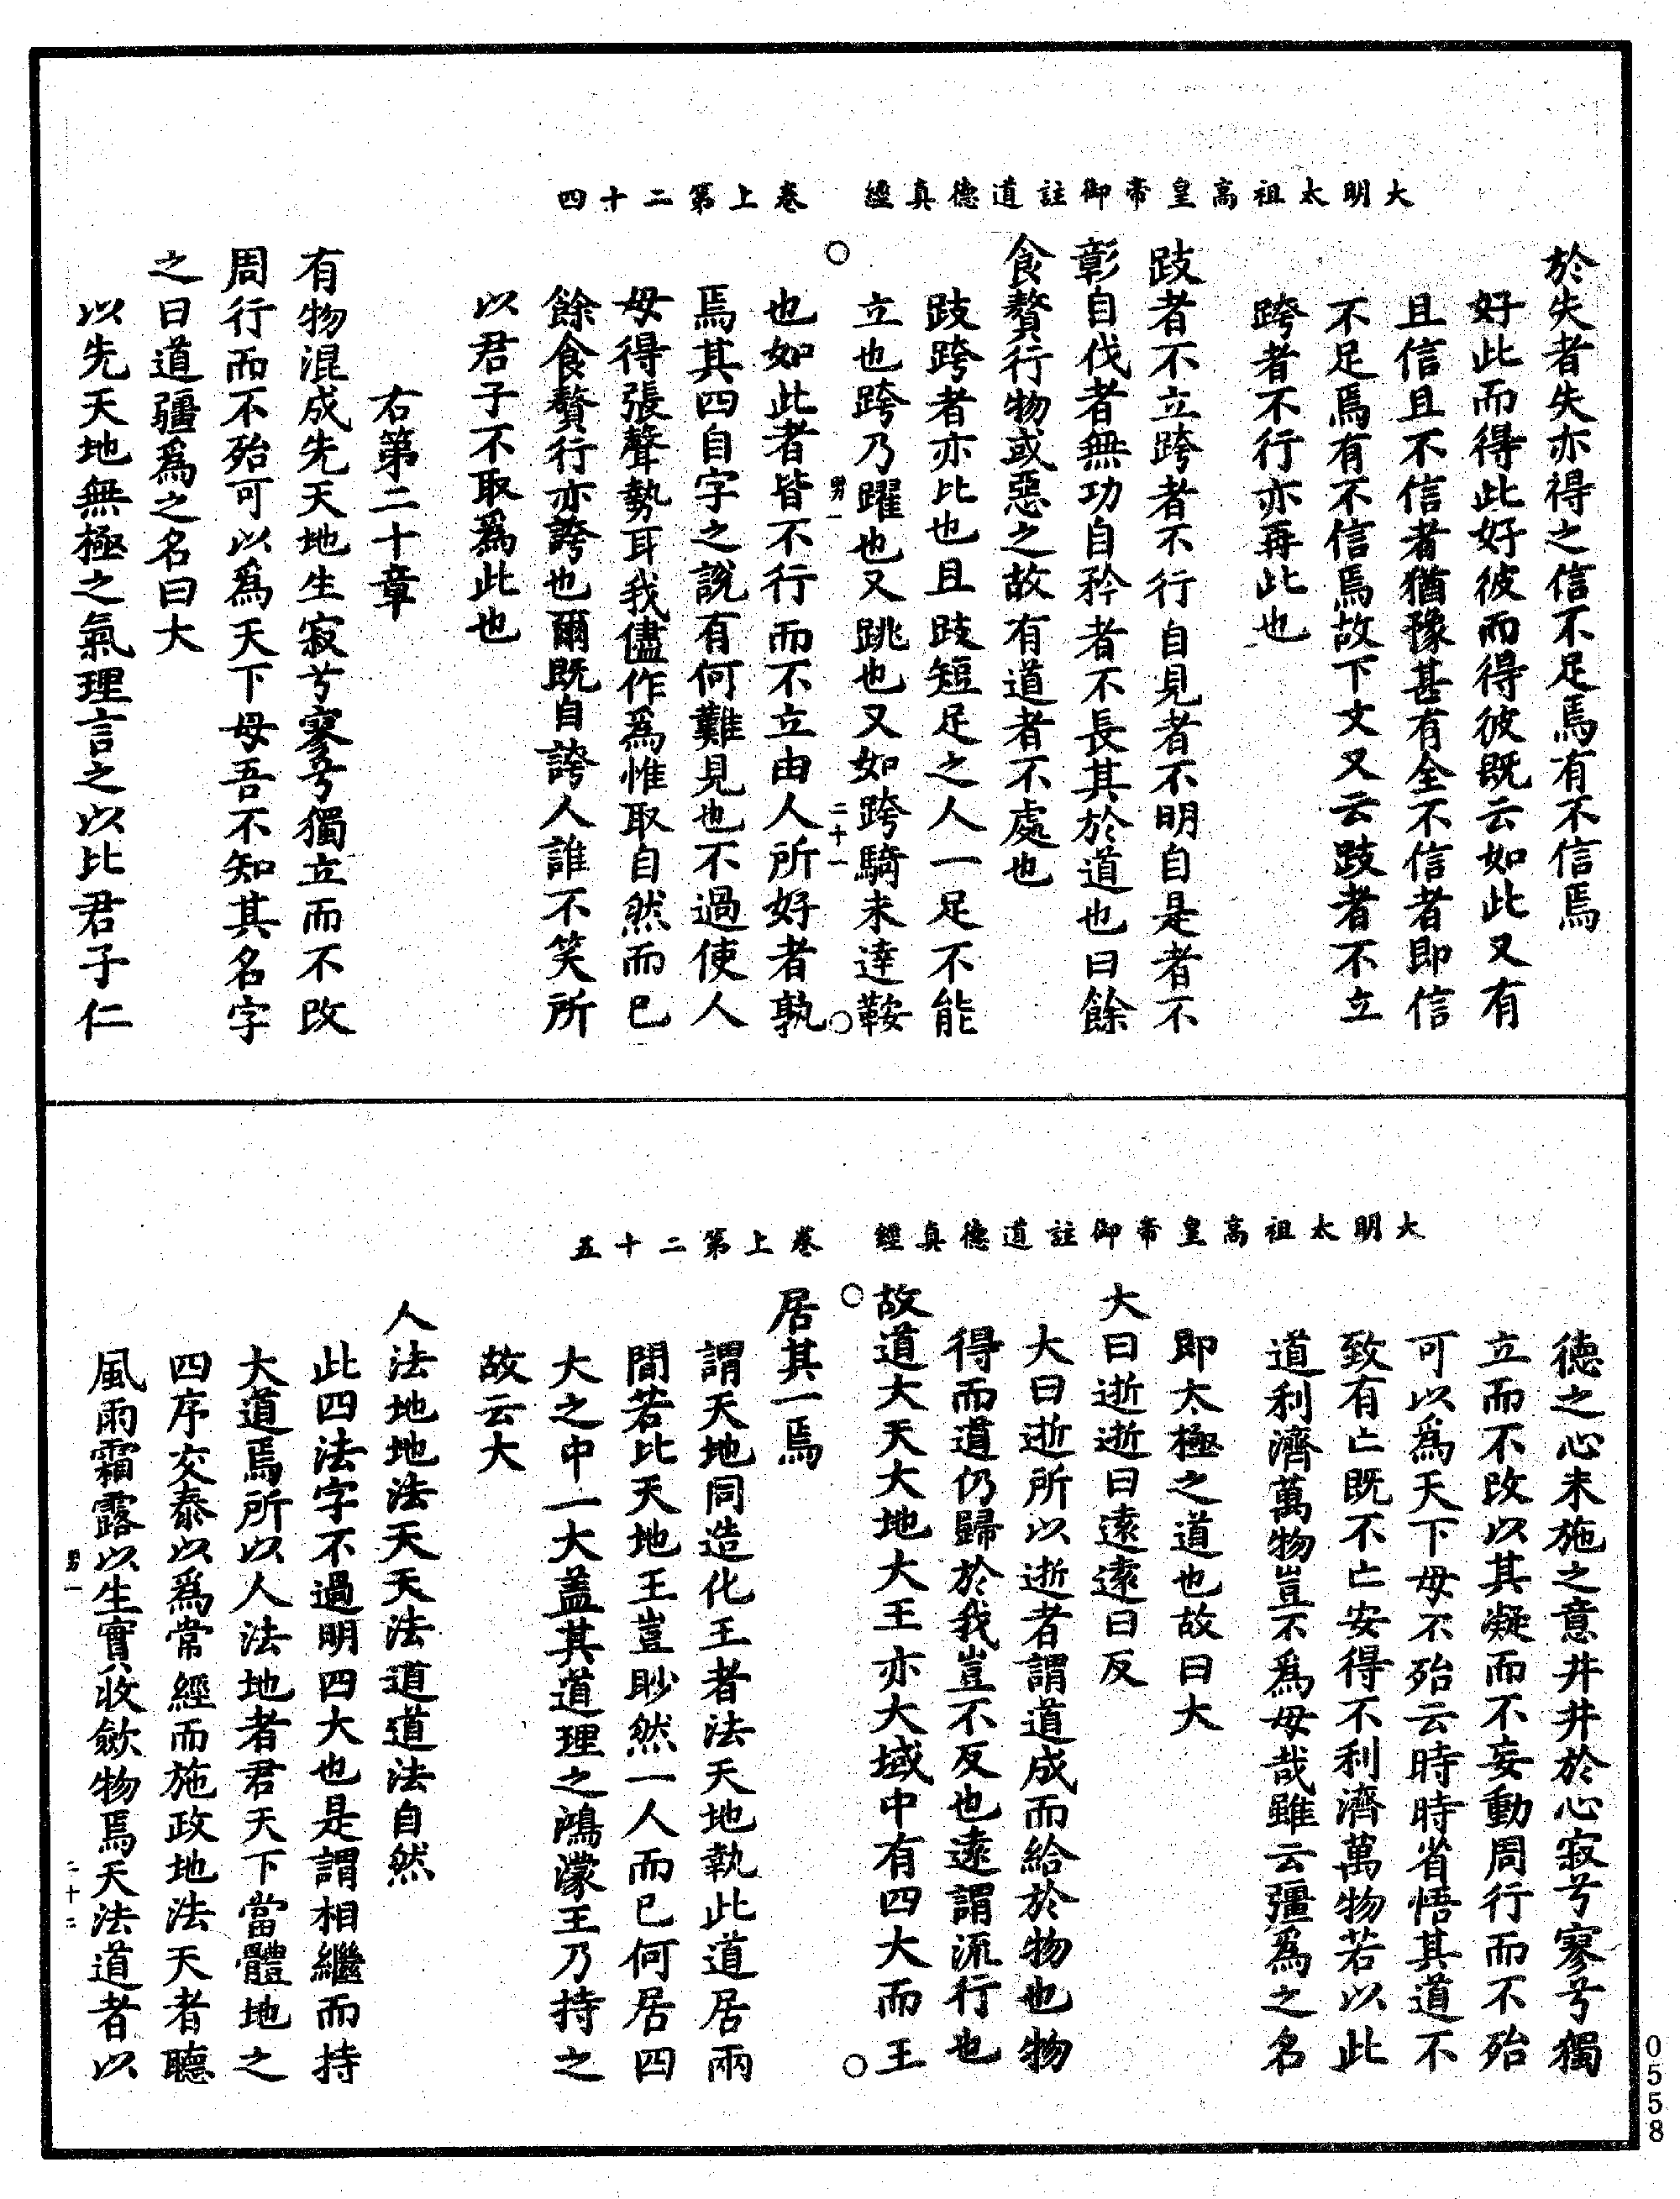 大明太祖高皇帝御註道德真經　卷上第二十四
於失者失亦得之信不足焉有不信焉
好此而得此好彼而得彼既云如此又有
且信且不信者猶豫甚有全不信者即信
不足焉有不信焉故下文又云跂者不立
跨者不行亦再此也
跂者不立跨者不行自見者不明自是者不
彰自伐者無功自矜者不長其於道也曰餘
食贅行物或惡之故有道者不處也
跂跨者亦比也且跂短足之人一足不能
立也跨乃躍也又跳也又如跨騎未達鞍
男一　二十一
也如此者皆不行而不立由人所好者孰
焉其四自字之說有何難見也不過使人
毋得張聲勢耳我儘作為惟取自然而已
餘食贅行亦誇也爾既自誇人誰不笑所
以君子不取為此也
右第二十章
有物混成先天地生寂兮寥兮獨立而不改
周行而不殆可以為天下母吾不知其名字
之曰道彊為之名曰大
以先天地無極之氣理言之以比君子仁
大明太祖高皇帝御註道德真經　卷上第二十五
德之心未施之意井井於心寂兮寥兮獨
立而不改以其凝而不妄動周行而不殆
可以為天下母不殆云時時省悟其道不
致有亡既不亡安得不利濟萬物若以此
道利濟萬物豈不為母哉雖云彊為之名
即太極之道也故曰大
大曰逝逝曰遠遠曰反
大曰逝所以逝者謂道成而給於物也物
得而道仍歸於我豈不反也遠謂流行也
故道大天大地大王亦大域中有四大而王
居其一焉
謂天地同造化王者法天地執此道居兩
間若比天地王豈眇然一人而已何居四
大之中一大蓋其道理之鴻濛王乃持之
故云大
人法地地法天天法道道法自然
此四法字不過明四大也是謂相繼而持
大道焉所以人法地者君天下當體地之
四序交泰以為常經而施政地法天者聽
風雨霜露以生實收斂物焉天法道者以
男一　二十二
0558